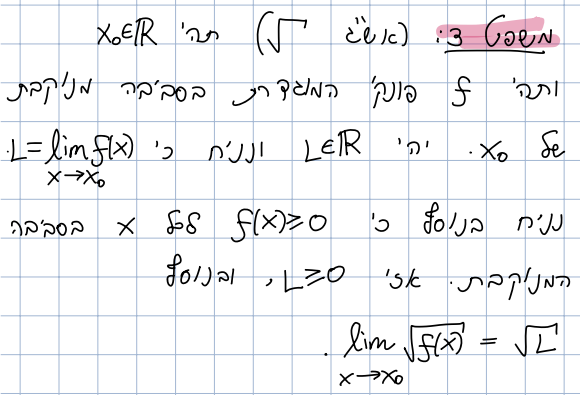 משפט 3: (אש"ג √) תהי x₀∈ℝ
ותהי f פונק' המוגדרת בסביבה מנוקבת
של x₀. יהי L∈ℝ ונניח כי L=lim f(x).
x→x₀
נניח בנוסף כי f(x)≥0 לכל x בסביבה
המנוקבת. אזי L≥0, ובנוסף
lim √f(x) = √L.
x→x₀